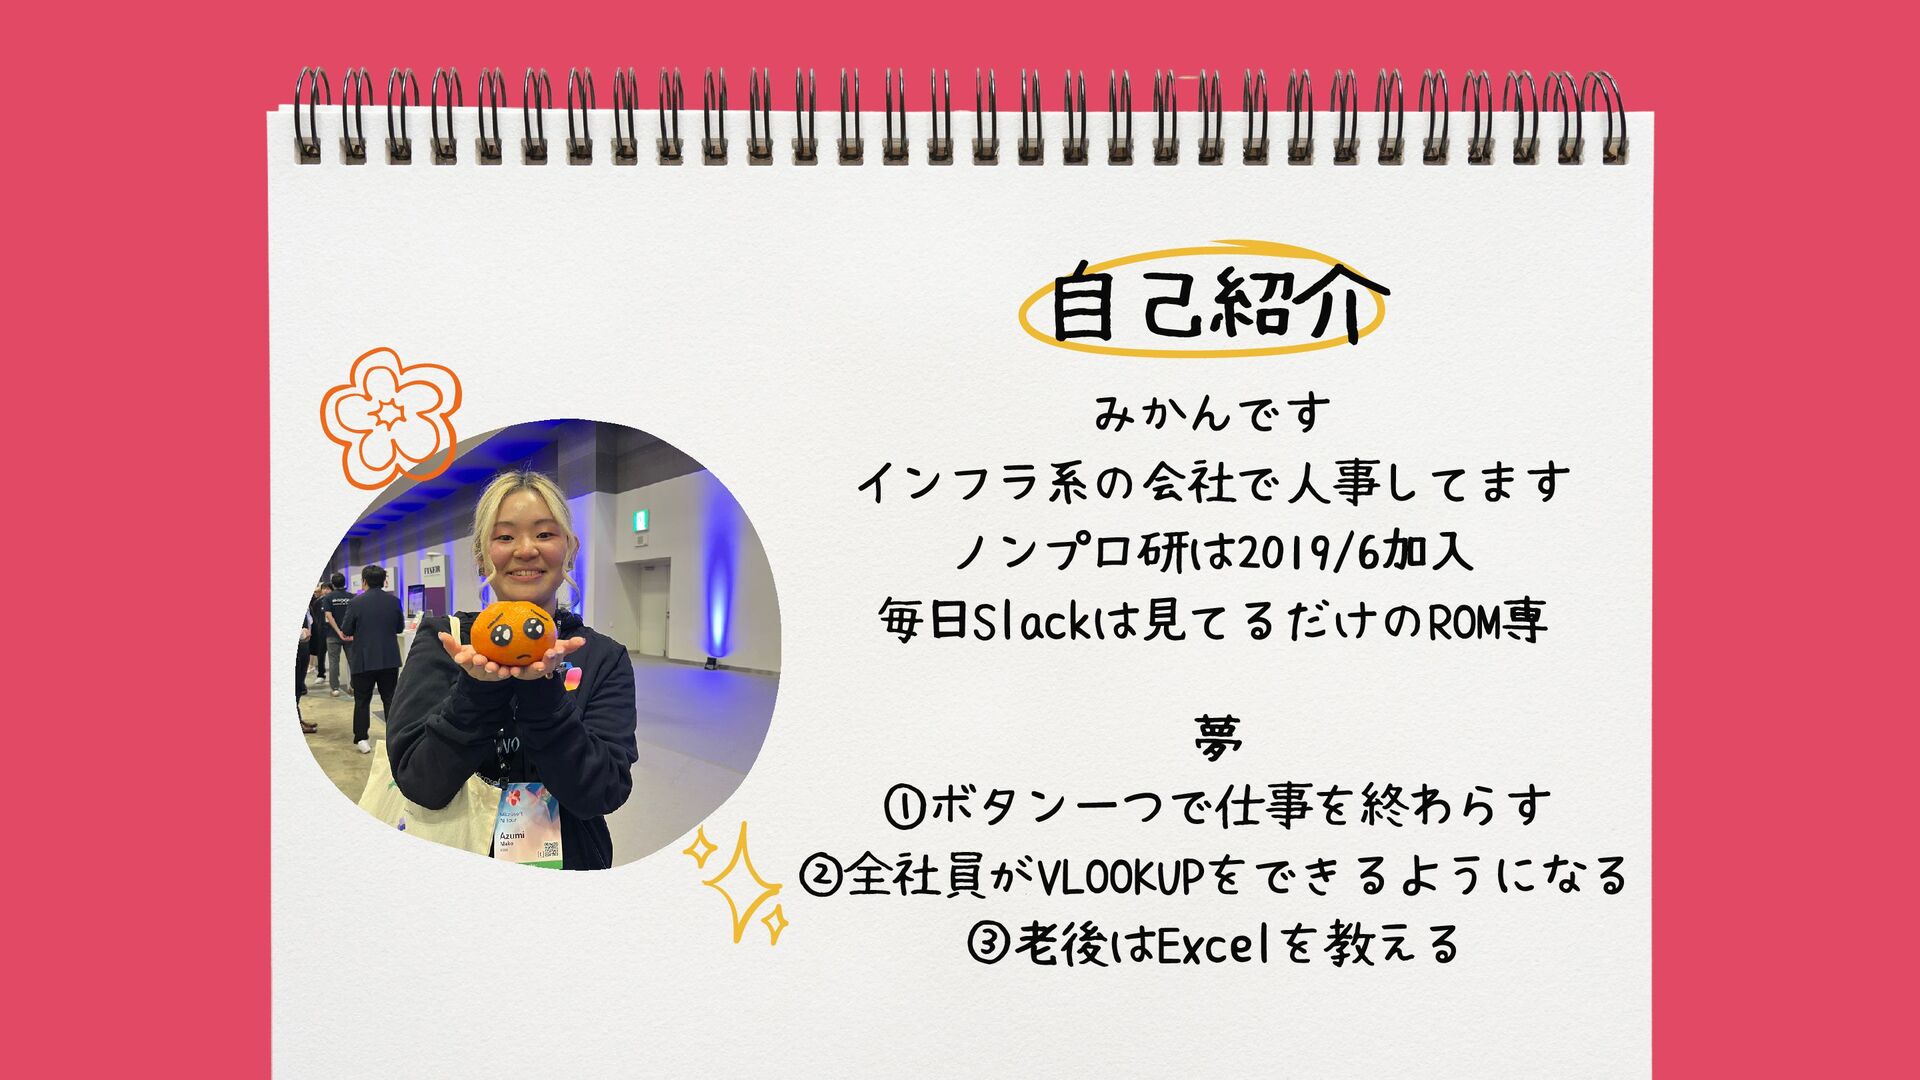 自己紹介
みかんです
インフラ系の会社で人事してます
ノンプロ研は2019/6加入
毎日Slackは見てるだけのROM専
夢
①ボタン一つで仕事を終わらす
②全社員がVLOOKUPをできるようになる
③老後はExcelを教える
FIXER
Microsoft
AI Tour
Azumi